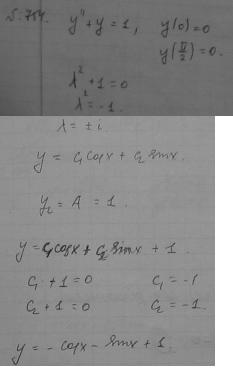 5.754. y'' + y = 1, y(0) = 0
y(π/2) = 0.
λ² + 1 = 0
λ² = -1.
λ = ± i.
y = c₁ cos x + c₂ sin x.
y₂ = A = 1.
y = c₁ cos x + c₂ sin x + 1.
c₁ + 1 = 0 c₁ = -1
c₂ + 1 = 0 c₂ = -1.
y = - cos x - sin x + 1.